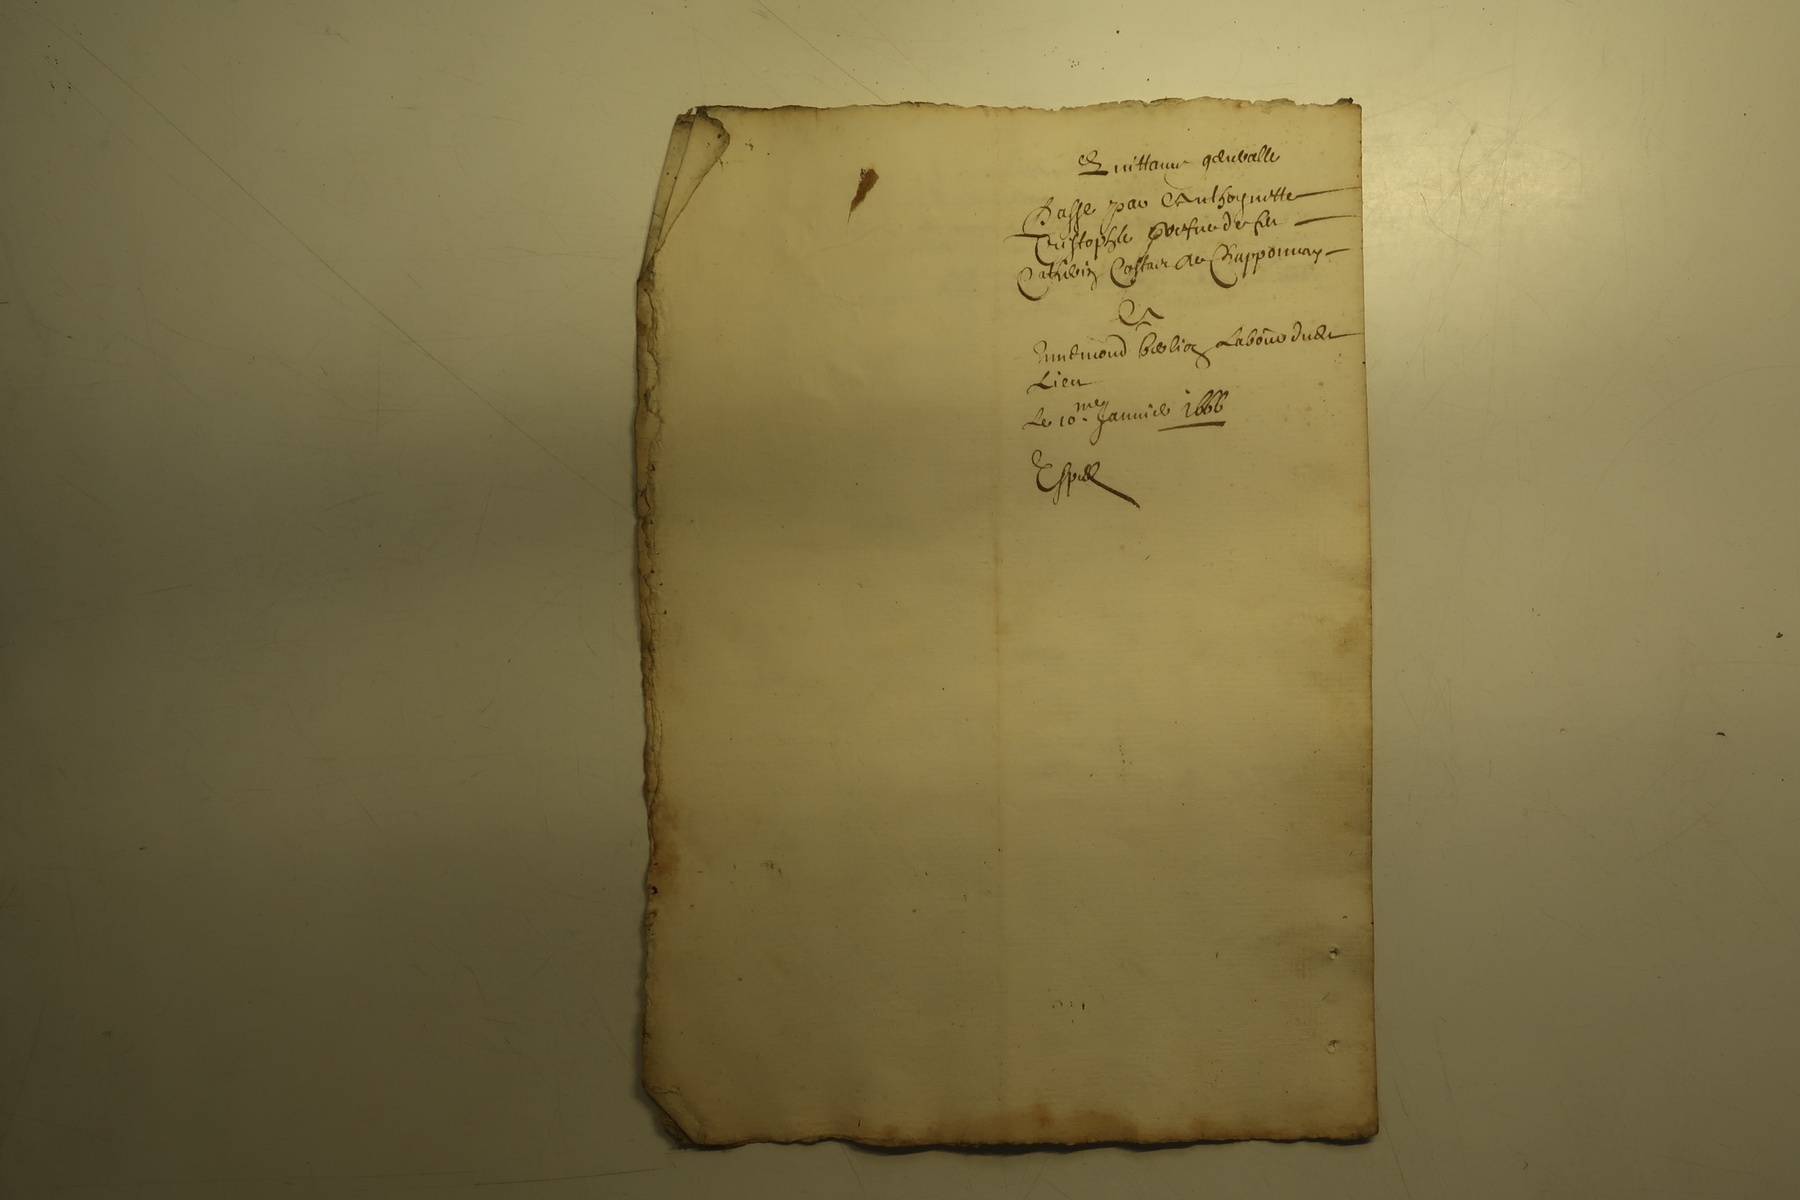 Quittance generalle
Passe par Anthoynette
Cristophle vefve de feu
Catherin Costaz de Chapponnay
A
Annemond Berlioz Labour dudt
Lieu
Le 10.me Janvier 1666
Exped